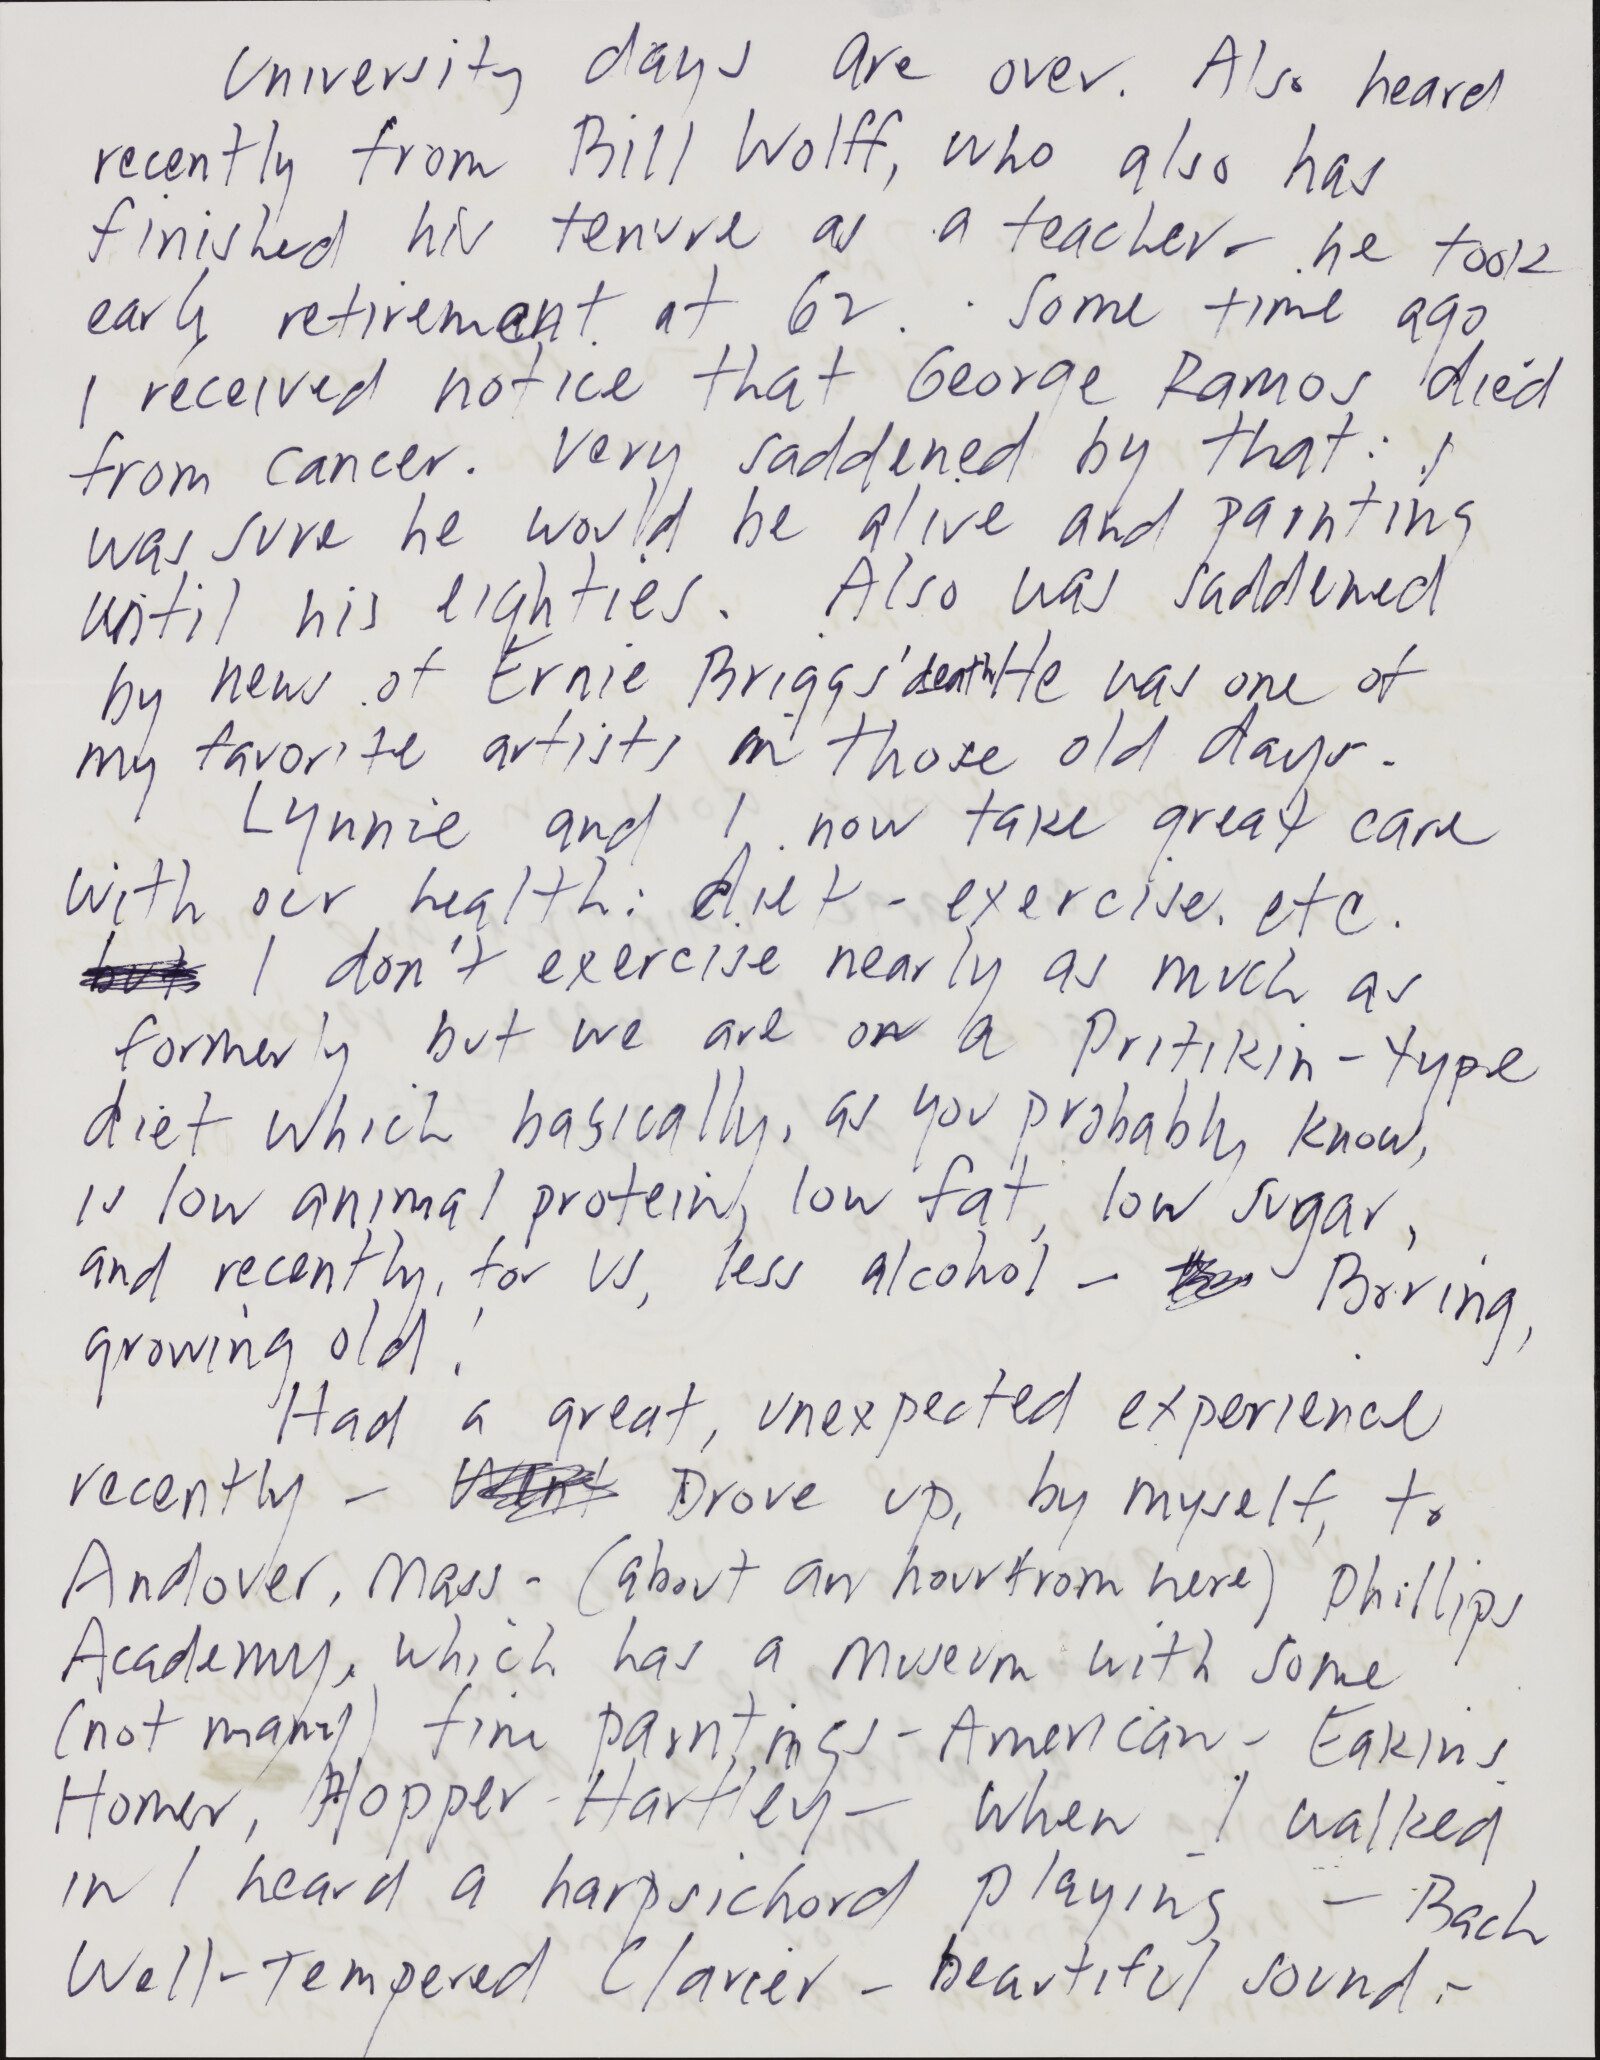 University days are over. Also heard
recently from Bill Wolff, who also has
finished his tenure as a teacher - he took
early retirement at 62. Some time ago
I received notice that George Ramos died
from cancer. Very saddened by that: I
was sure he would be alive and painting
until his eighties. Also was saddened
by news of Ernie Briggs' death He was one of
my favorite artists in those old days.
Lynnie and I now take great care
with our health: diet - exercise. etc.
but I don't exercise nearly as much as
formerly but we are on a Pritikin-type
diet which basically, as you probably know,
is low animal protein, low fat, low sugar,
and recently, for us, less alcohol - Boring,
growing old!
Had a great, unexpected experience
recently - Went Drove up, by myself, to
Andover, Mass - (about an hour from here) Phillips
Academy, which has a museum with some
(not many) fine paintings - American - Eakins
Homer, Hopper - Hartley - When I walked
in I heard a harpsichord playing - Bach
Well-Tempered Clavier - beautiful sound. -